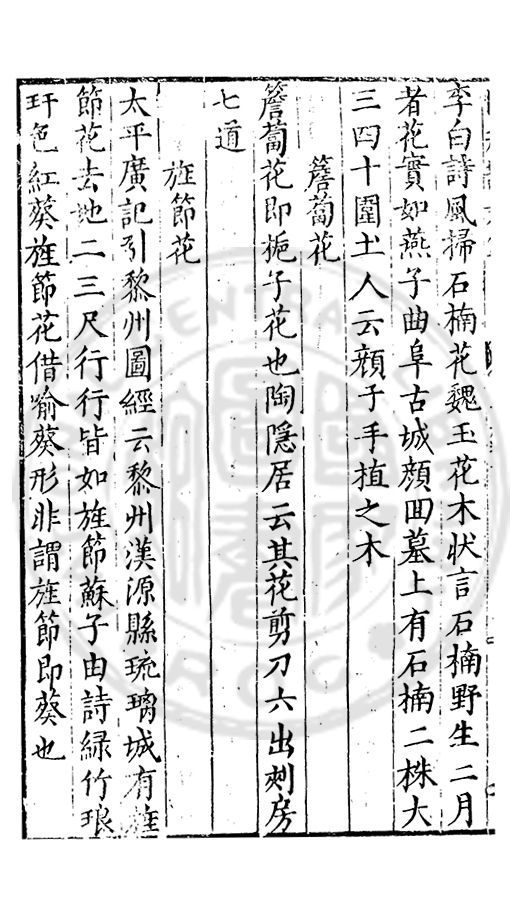 李白詩風掃石楠花魏王花木狀言石楠野生二月
者花實如燕子曲阜古城顔回墓上有石楠二株大
三四十圍土人云顔子手植之木
簷蔔花
簷蔔花即梔子花也陶隱居云其花剪刀六出刻房
七道
旌節花
太平廣記引黎州圖經云黎州漢源縣琉璃城有旌
節花去地二三尺行行皆如旌節蘇子由詩緑竹琅
玕色紅葵旌節花借喻葵形非謂旌節即葵也